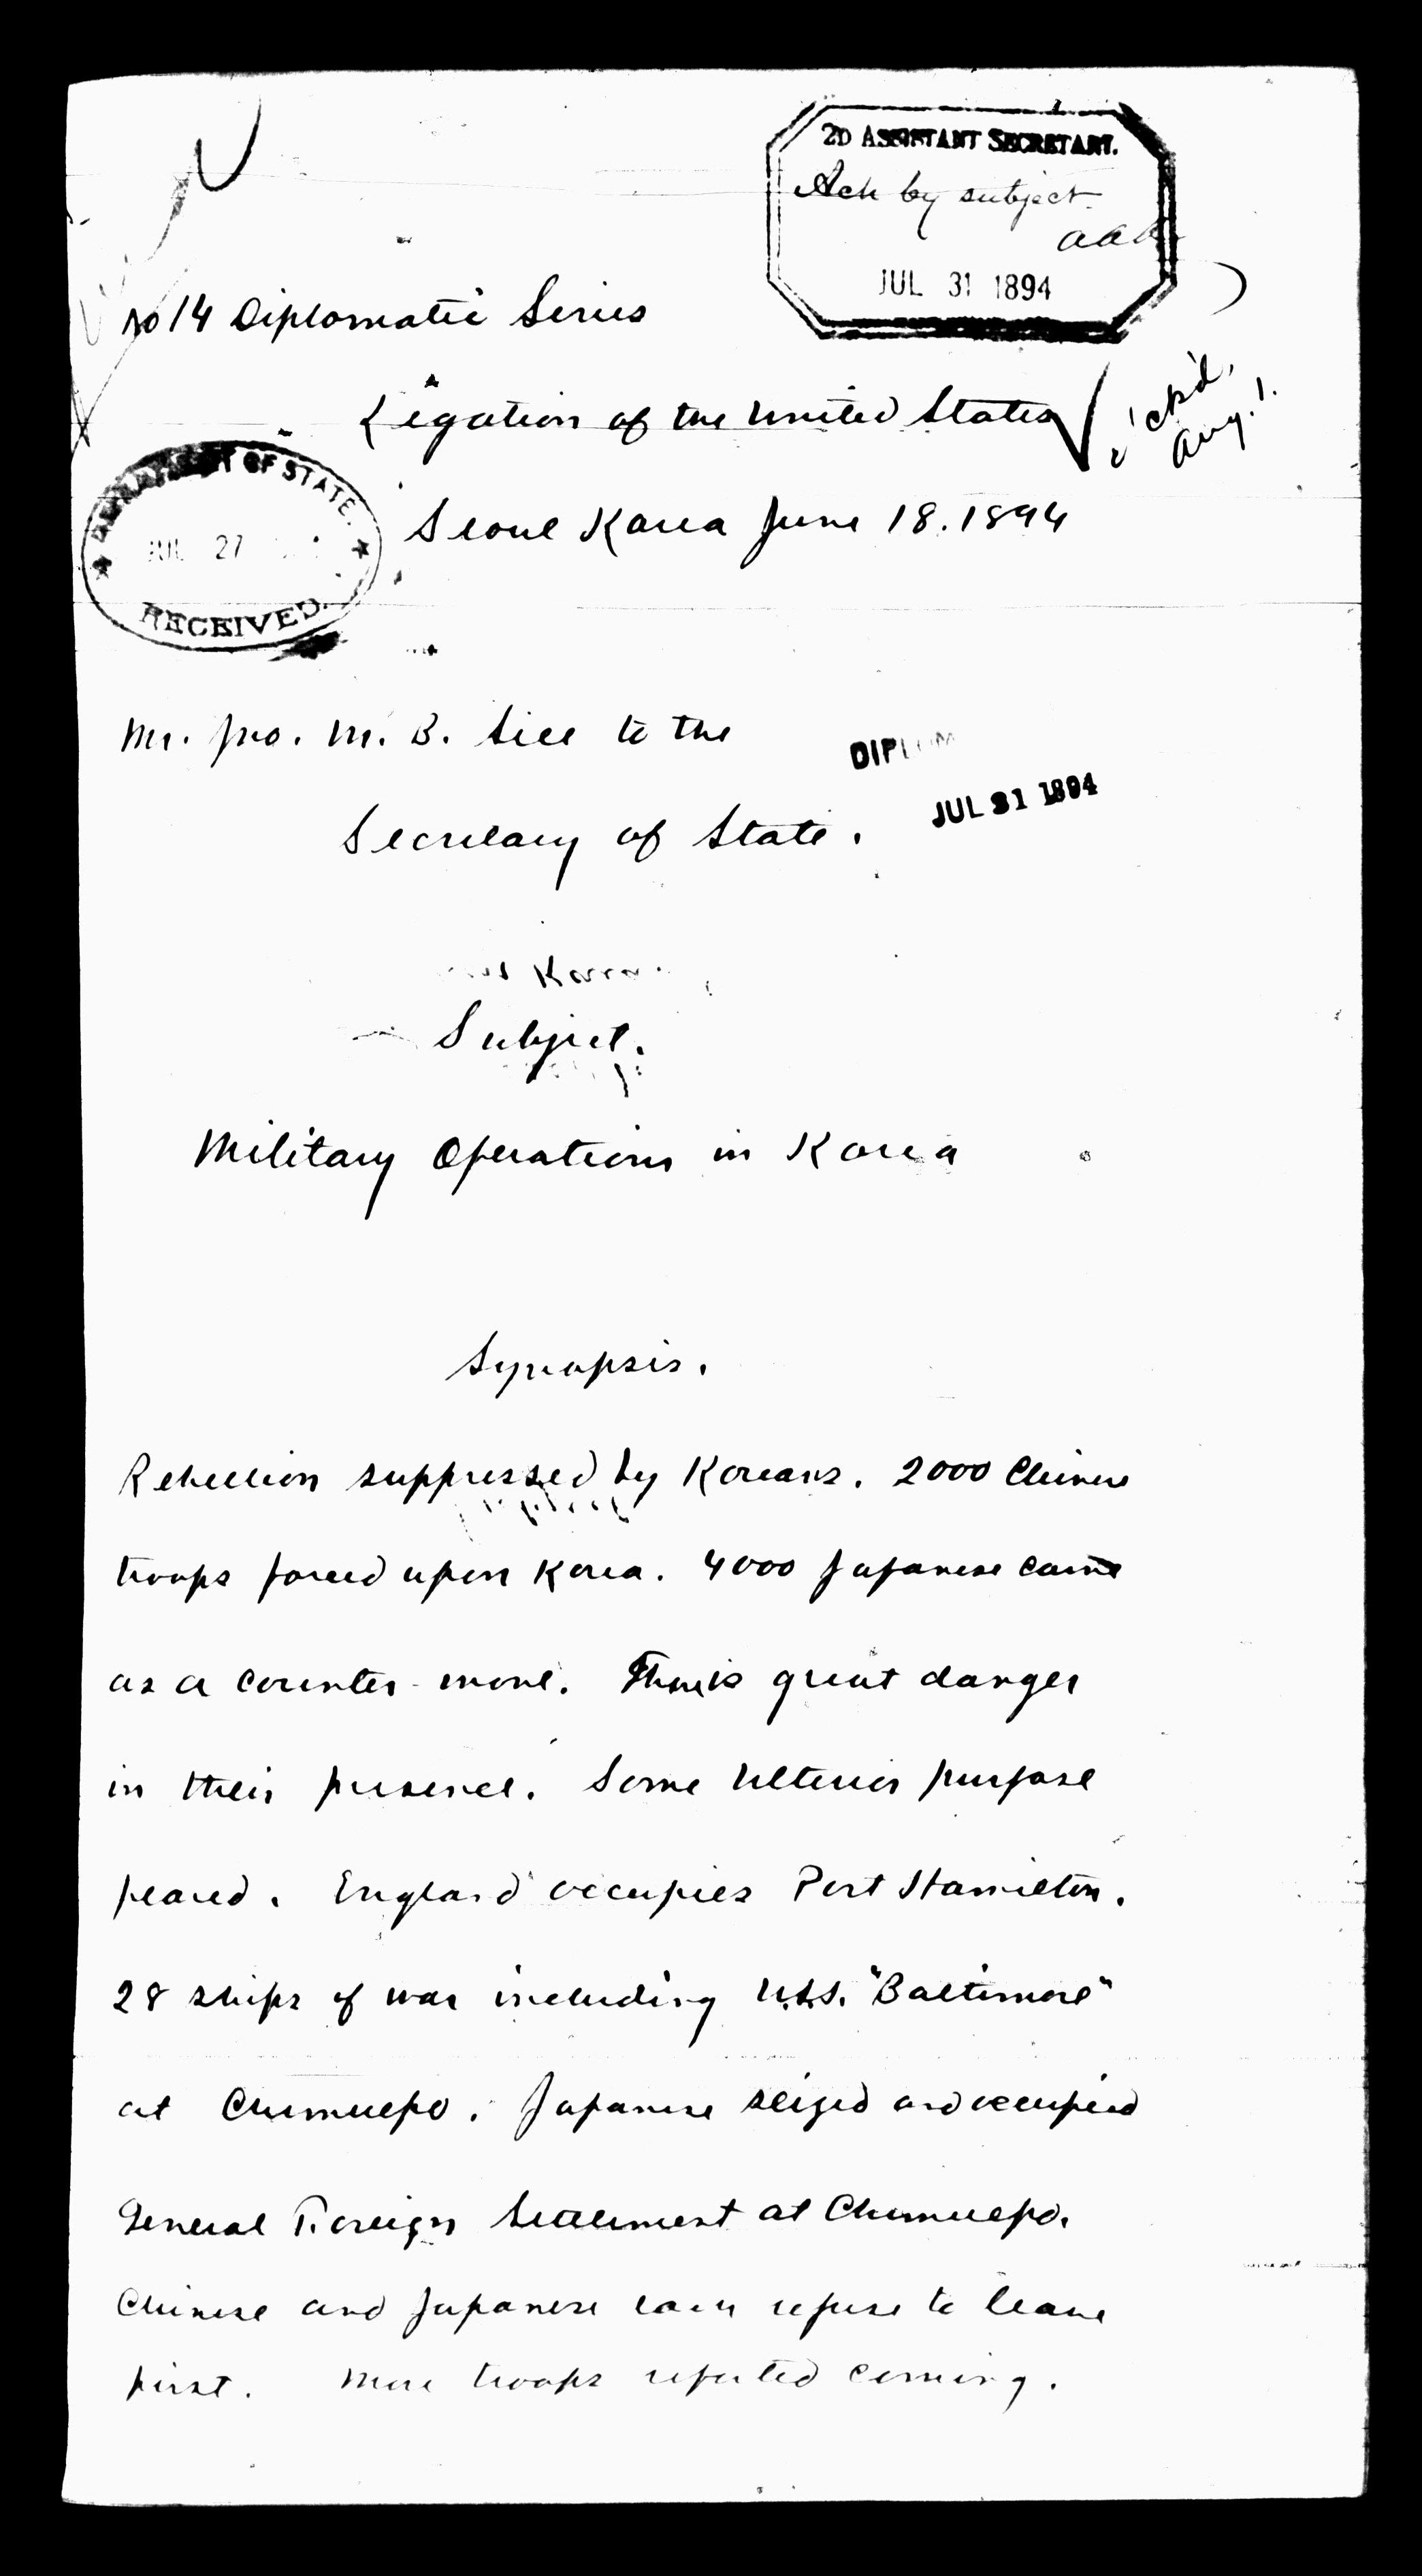 2D ASSISTANT SECRETARY.
Ack by subject
aaa
JUL 31 1894
No 14 Diplomatic Series
Legation of the United States
Ack'd.
Aug. 1.
DEPARTMENT OF STATE.
JUL 27
RECEIVED.
Seoul Korea June 18. 1894
Mr. Jno. M. B. Sill to the
DIPLOM
JUL 31 1894
Secretary of State.
Korea.
Subject.
Military Operations in Korea
Synopsis.
Rebellion suppressed by Koreans. 2000 Chinese
troops forced upon Korea. 4000 Japanese came
as a counter-move. There is great danger
in their presence. Some ulterior purpose
feared. England occupies Port Hamilton.
28 ships of war including U.S.S. "Baltimore"
at Chemulpo. Japanese seized and occupied
General Foreign Settlement at Chemulpo.
Chinese and Japanese each refuse to leave
first. More troops reported coming.